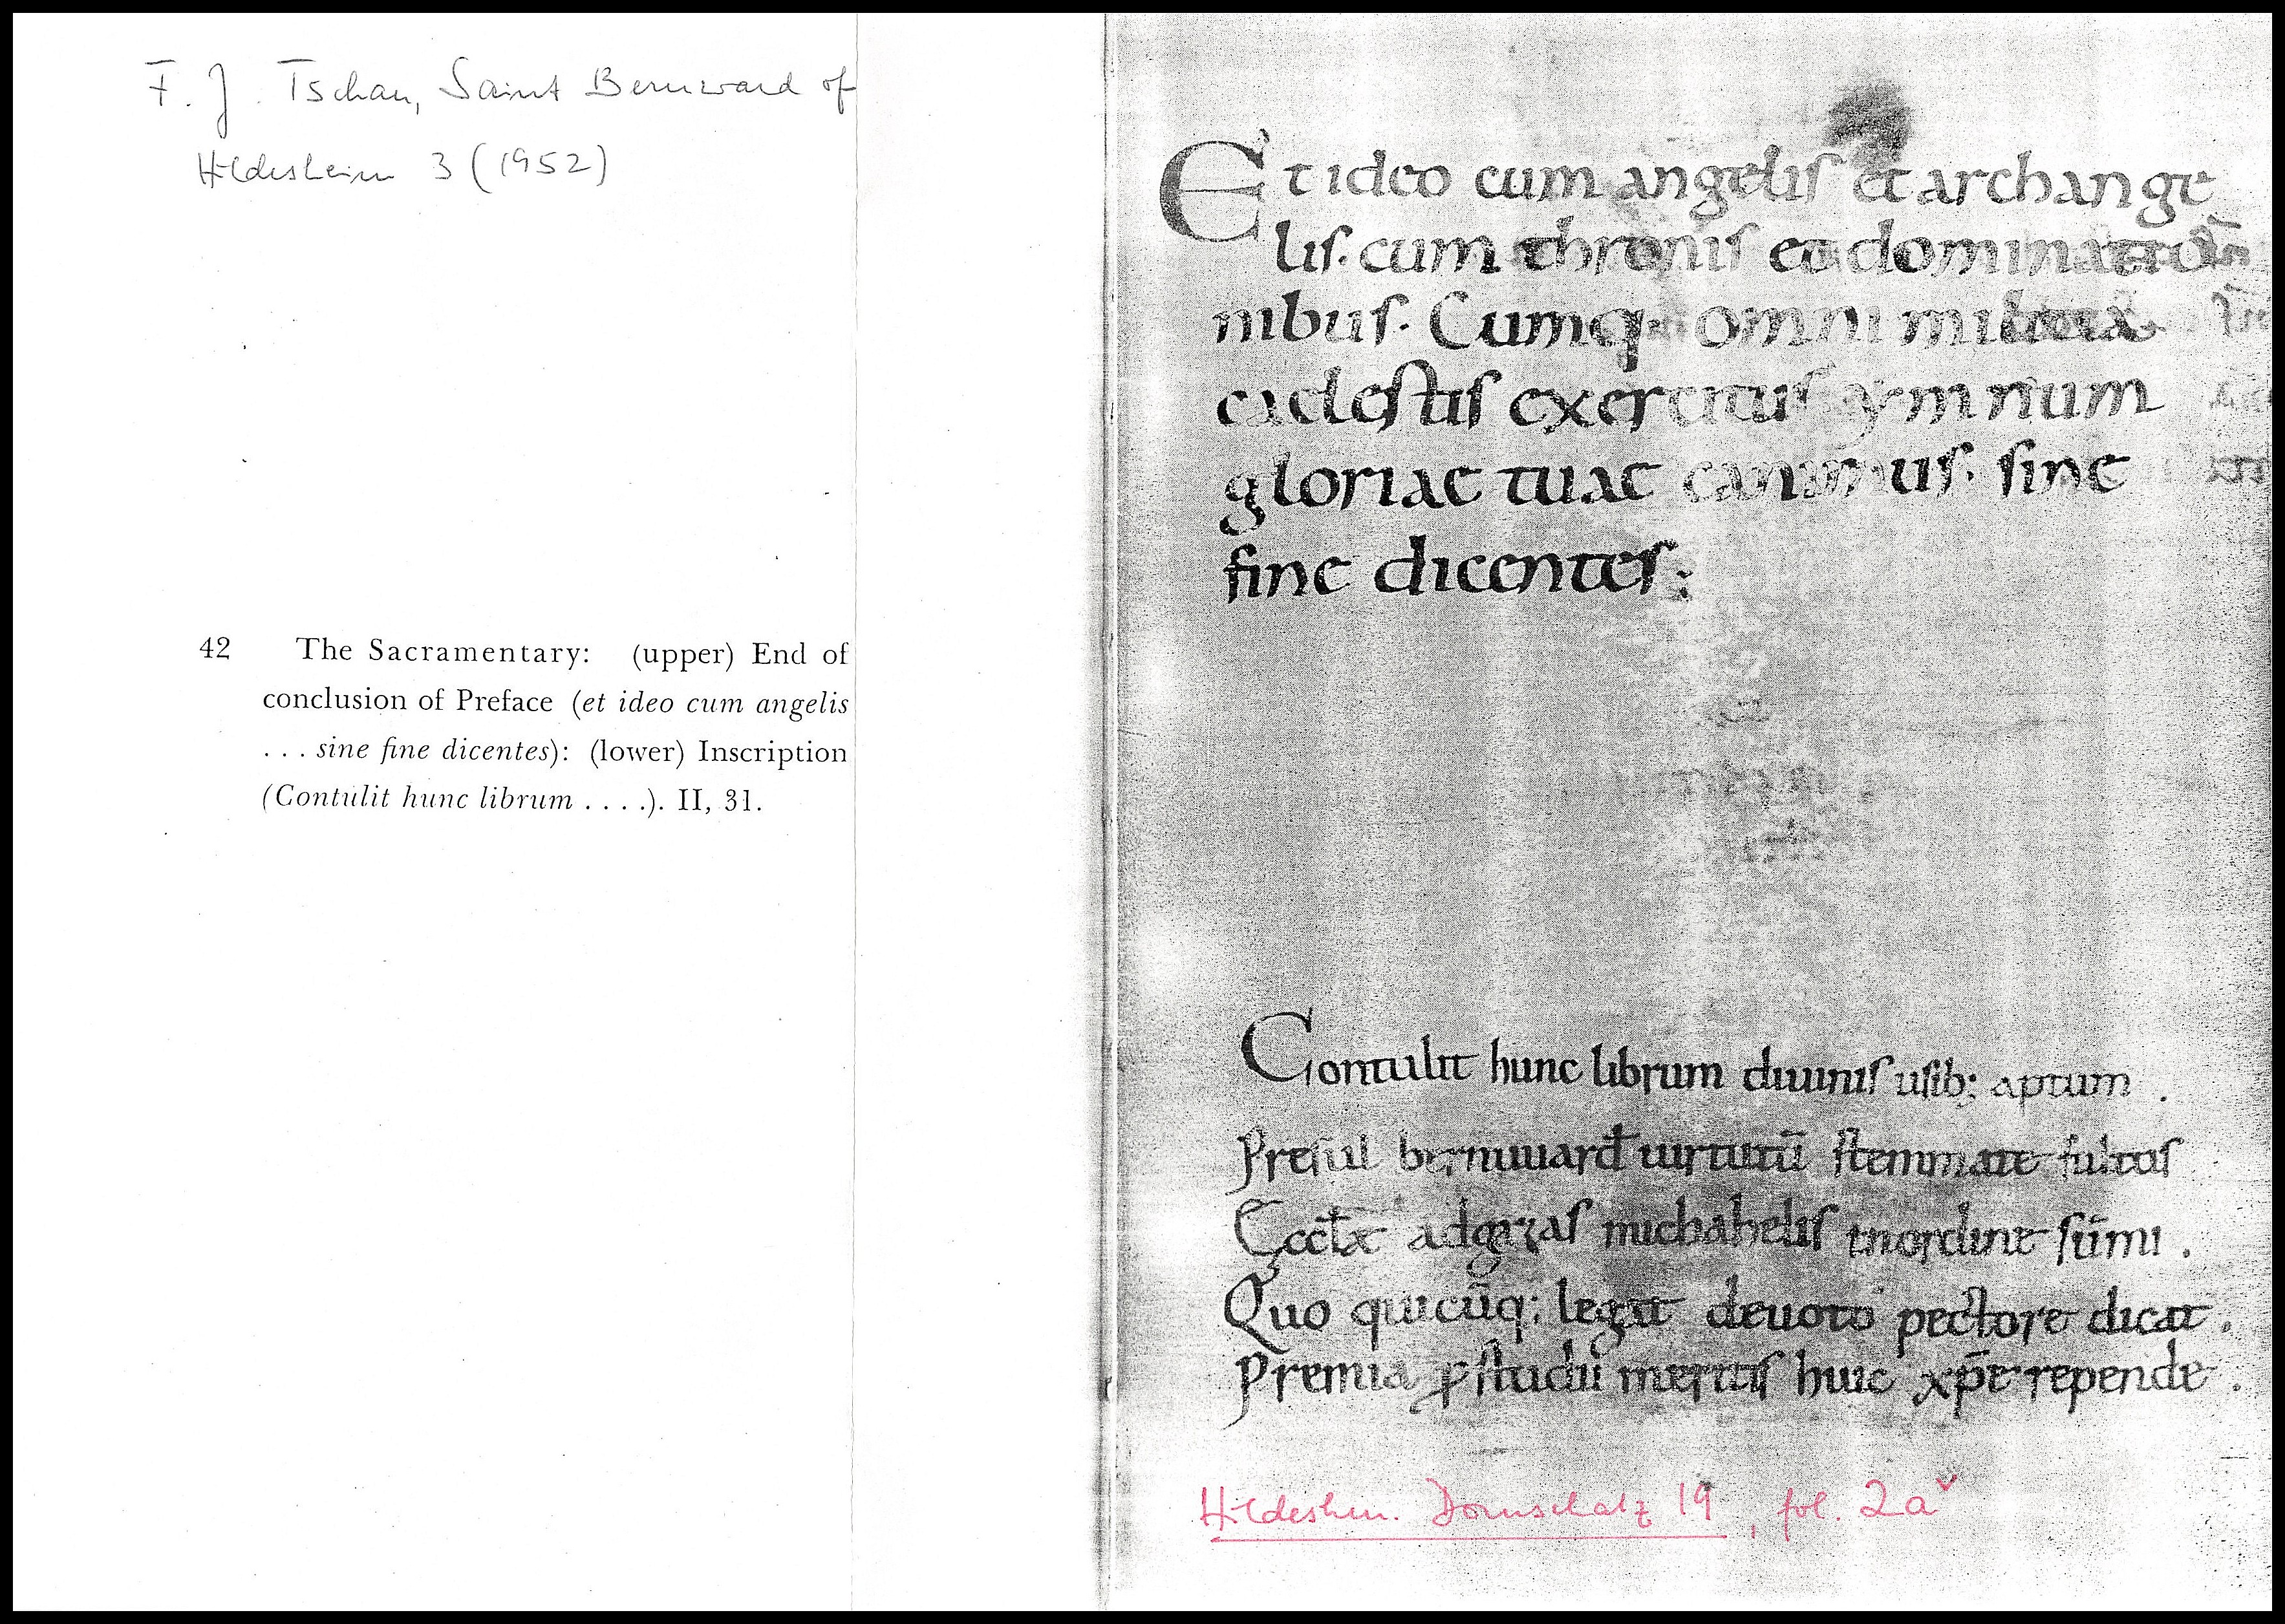 F. J. Tschan, Saint Bernward of
Hildesheim 3 (1952)
42 The Sacramentary: (upper) End of
conclusion of Preface (et ideo cum angelis
. . . sine fine dicentes): (lower) Inscription
(Contulit hunc librum . . . .). II, 31.
Et ideo cum angelis et archange
lis. cum thronis et dominatio
nibus. Cumq· omni militia
caelestis exercitus ymnum
gloriae tuae canimus. sine
fine dicentes:
Contulit hunc librum diuinis usib; aptum .
Presul bernuuard̄ uirtutū stemmate fultus
Ęccłæ adgizas michahelis inordine sūmi .
Quo quicūq; legat deuoto pectore dicat .
Premia ꝓstudii meritis huic xp̄e repende .
Hildeshm. Domschatz 19, fol. 2av